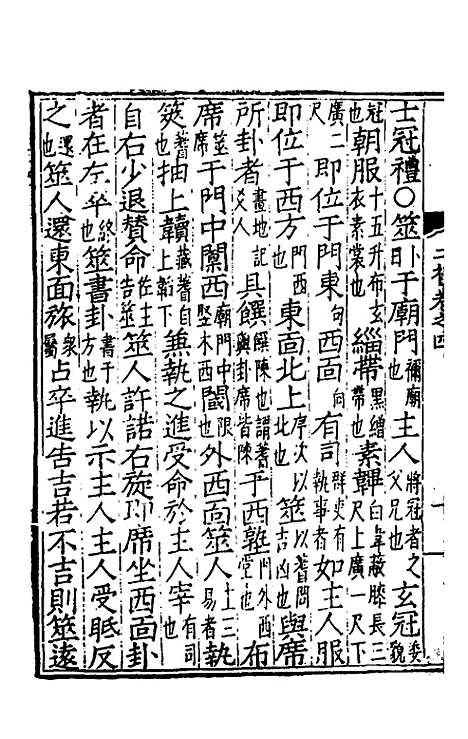 士冠禮○筮卜日于廟門禰廟也主人將冠者之父兄也玄冠委貌
冠也朝服十五升布玄衣素裳也緇帶黑繒帶也素韠白韋蔽膝長三尺上廣一尺下
廣二尺即位于門東西面向有司群吏有執事者如主人服
即位于西方門西東面北上序次以北也筮以蓍問吉凶也與席
所卦者畫地記爻人具饌饌陳也謂蓍與卦席皆陳于西塾門外西堂也布
席筮席于門中闑西廟門中竪木西閾門限也外西面筮人主三易者執
筴蓍也抽上韇藏蓍自上韜下兼執之進受命於主人宰有司也
自右少退贊命佐主告筮筮人許諾右旋即席坐西面卦
者在左卒終也筮書卦書于方也執以示主人主人受眡反
之還也筮人還東面旅衆屬占卒進告吉若不吉則筮遠